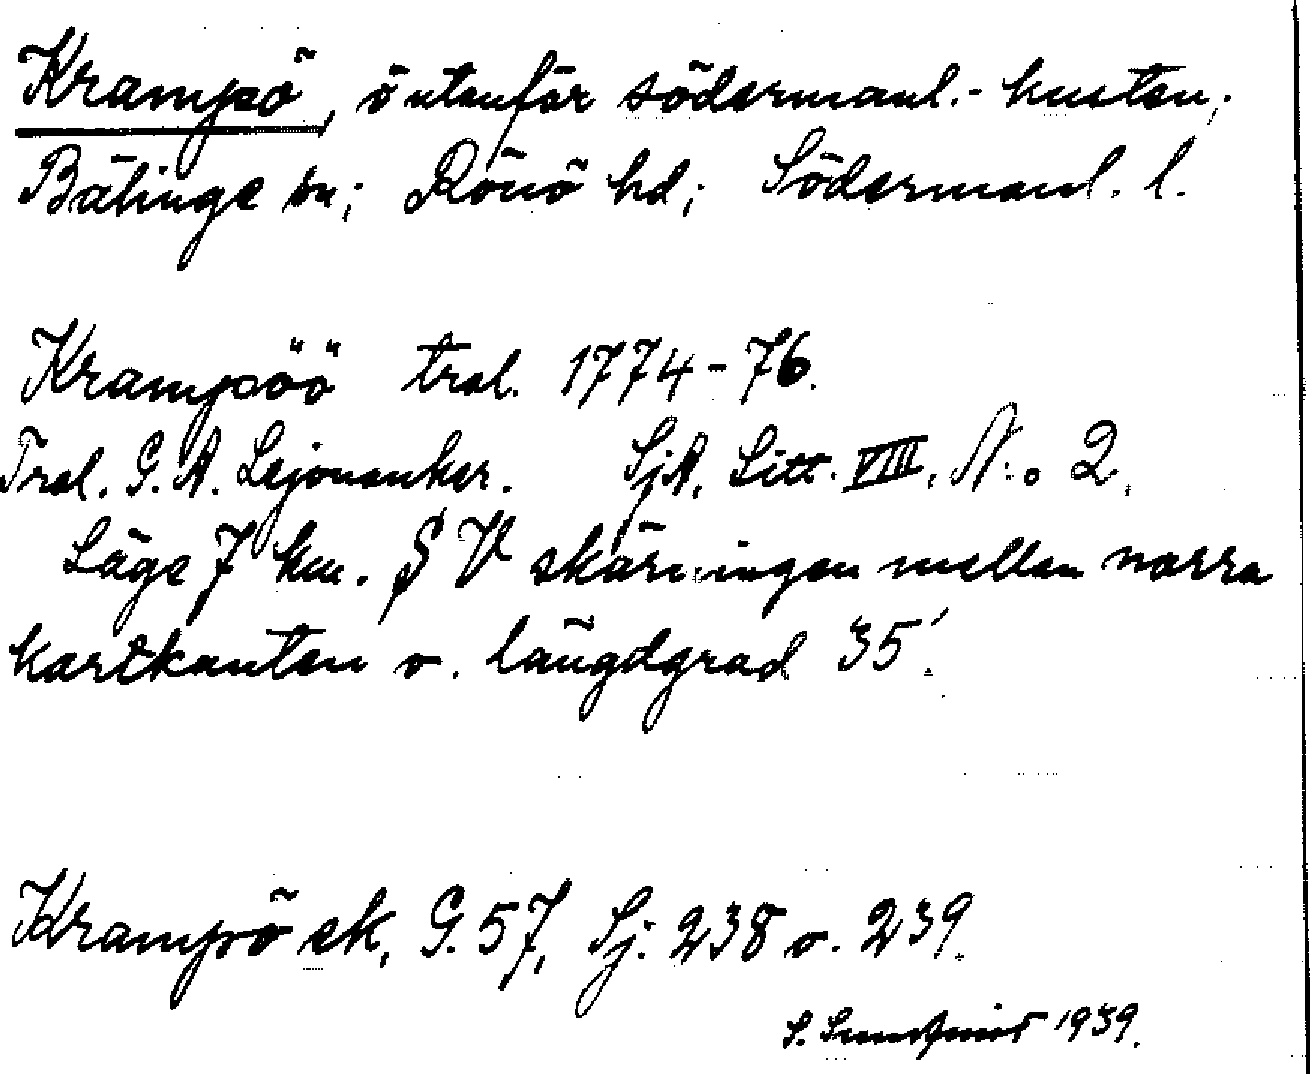 Krampö, ö utanför södermanl.-kusten;
Bälinge sn; Rönö hd; Södermanl. l.
Krampöö trol. 1774-76.
Trol. G. A. Lejonanker. SjA, Litt. VIII, N:o 2.
Läge 7 km. S V skärningen mellan norra
kartkanten o. längdgrad 35'.
Krampö ek, G. 57, Sj. 238 o. 239.
S. Sundqvist 1939.